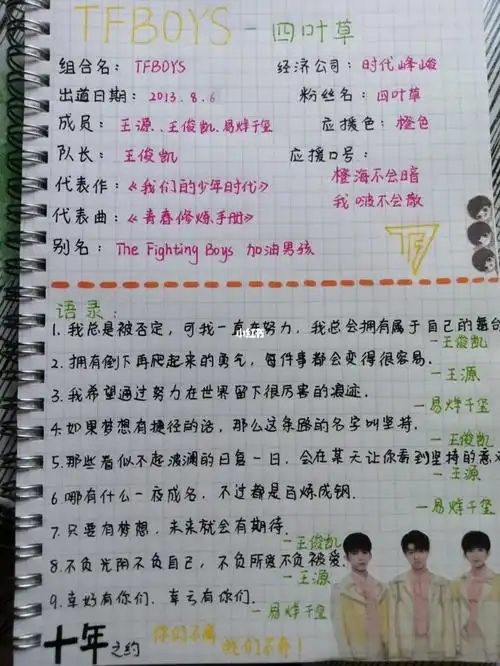 TFBOYS - 四叶草
组合名: TFBOYS 经济公司: 时代峰峻
出道日期: 2013.8.6 粉丝名: 四叶草
成员: 王源、王俊凯、易烊千玺 应援色: 橙色
队长: 王俊凯 应援口号:
橙海不会暗
代表作:《我们的少年时代》
我啵不会散
代表曲:《青春修炼手册》
别名: The Fighting Boys 加油男孩
TF
语录:
小红书
1. 我总是被否定, 可我一直在努力, 我总会拥有属于自己的舞台
—王俊凯
2. 拥有倒下再爬起来的勇气, 每件事都会变得很容易.
—王源
3. 我希望通过努力在世界留下很厉害的痕迹.
—易烊千玺
4. 如果梦想有捷径的话, 那么这条路的名字叫坚持.
—王俊凯
5. 那些看似不起波澜的日复一日, 会在某天让你看到坚持的意义
—王源
6 哪有什么一夜成名, 不过都是百炼成钢.
—易烊千玺
7. 只要有梦想, 未来就会有期待.
—王俊凯
8. 不负光阴不负自己, 不负所爱不负被爱.
—王源
9. 幸好有你们, 幸亏有你们.
—易烊千玺
十年之约 你们不离 我们不弃!